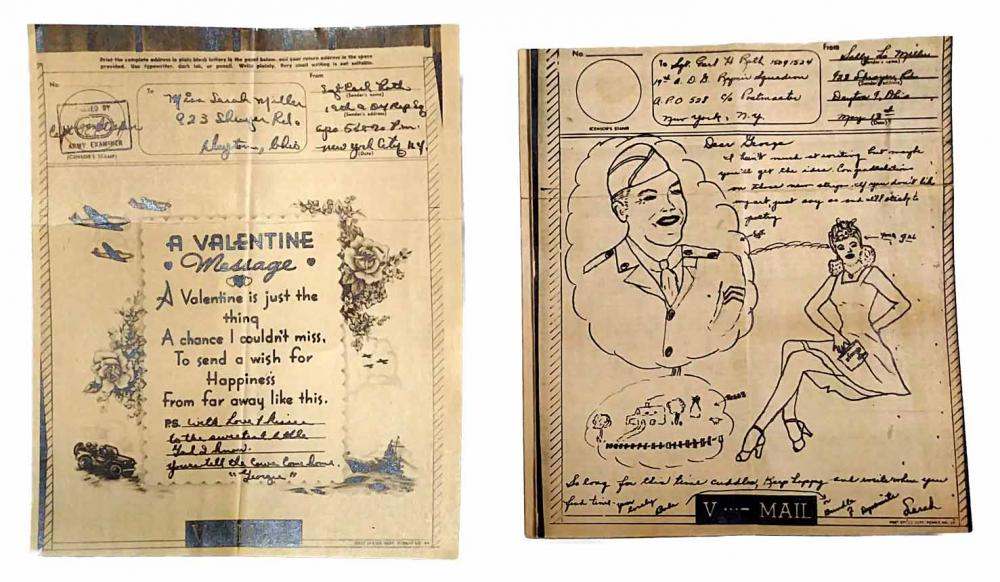 Print the complete address in plain block letters in the panel below, and your return address in the space
provided. Use typewriter, dark ink, or pencil. Write plainly. Very small writing is not suitable.
No.
To
Miss Sarah Miller
923 Shroyer Rd.
Dayton, Ohio
From
Sgt Earl Roth
(Sender's name)
(Sender's address)
APO
New York City N.Y.
(Date)
ARMY EXAMINER
(CENSOR'S STAMP)
A VALENTINE
Message
A Valentine is just the
thing
A chance I couldn't miss,
To send a wish for
Happiness
From far away like this.
P.S. With Love & Kisses
to the sweetest little
Gal I know.
Yours till the Cows Come home.
"Georgie"
V
No.
(CENSOR'S STAMP)
To Sgt Earl H Roth
A.P.O 528 c/o Postmaster
New York, N.Y.
From
Sally L. Miller
(Sender's name)
923 Shroyer Rd
Dayton 9, Ohio
(Date)
Dear George
I ain't much at writing but maybe
you'll get the idea. Congratulations
on those new stripes. If you don't like
my art, just say so and I'll stick to
poetry
your gal
So long for this time cuddles, Keep happy and write when you
find time
V···— MAIL
Sarah